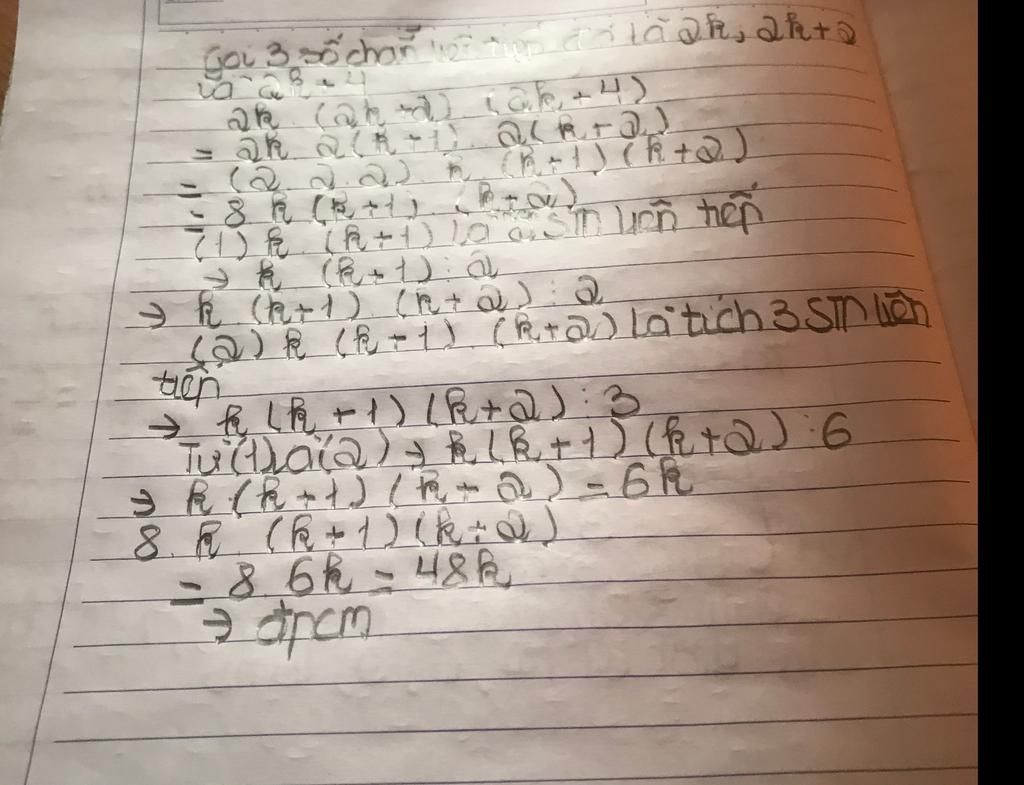 Gọi 3 số chẵn liên tiếp đó là 2k, 2k+2
và 2k+4
2k (2k+2) (2k+4)
= 2k 2(k+1) 2(k+2)
= (2 2 2) k (k+1) (k+2)
= 8 k (k+1) (k+2)
(1) k (k+1) là 2 STN liên tiếp
→ k (k+1) : 2
→ k (k+1) (k+2) : 2
(2) k (k+1) (k+2) là tích 3 STN liên
tiếp
→ k (k+1) (k+2) : 3
Từ (1) và (2) → k (k+1) (k+2) : 6
→ k . (k+1) (k+2) = 6k
8. k (k+1) (k+2)
= 8 6k = 48k
→ đpcm